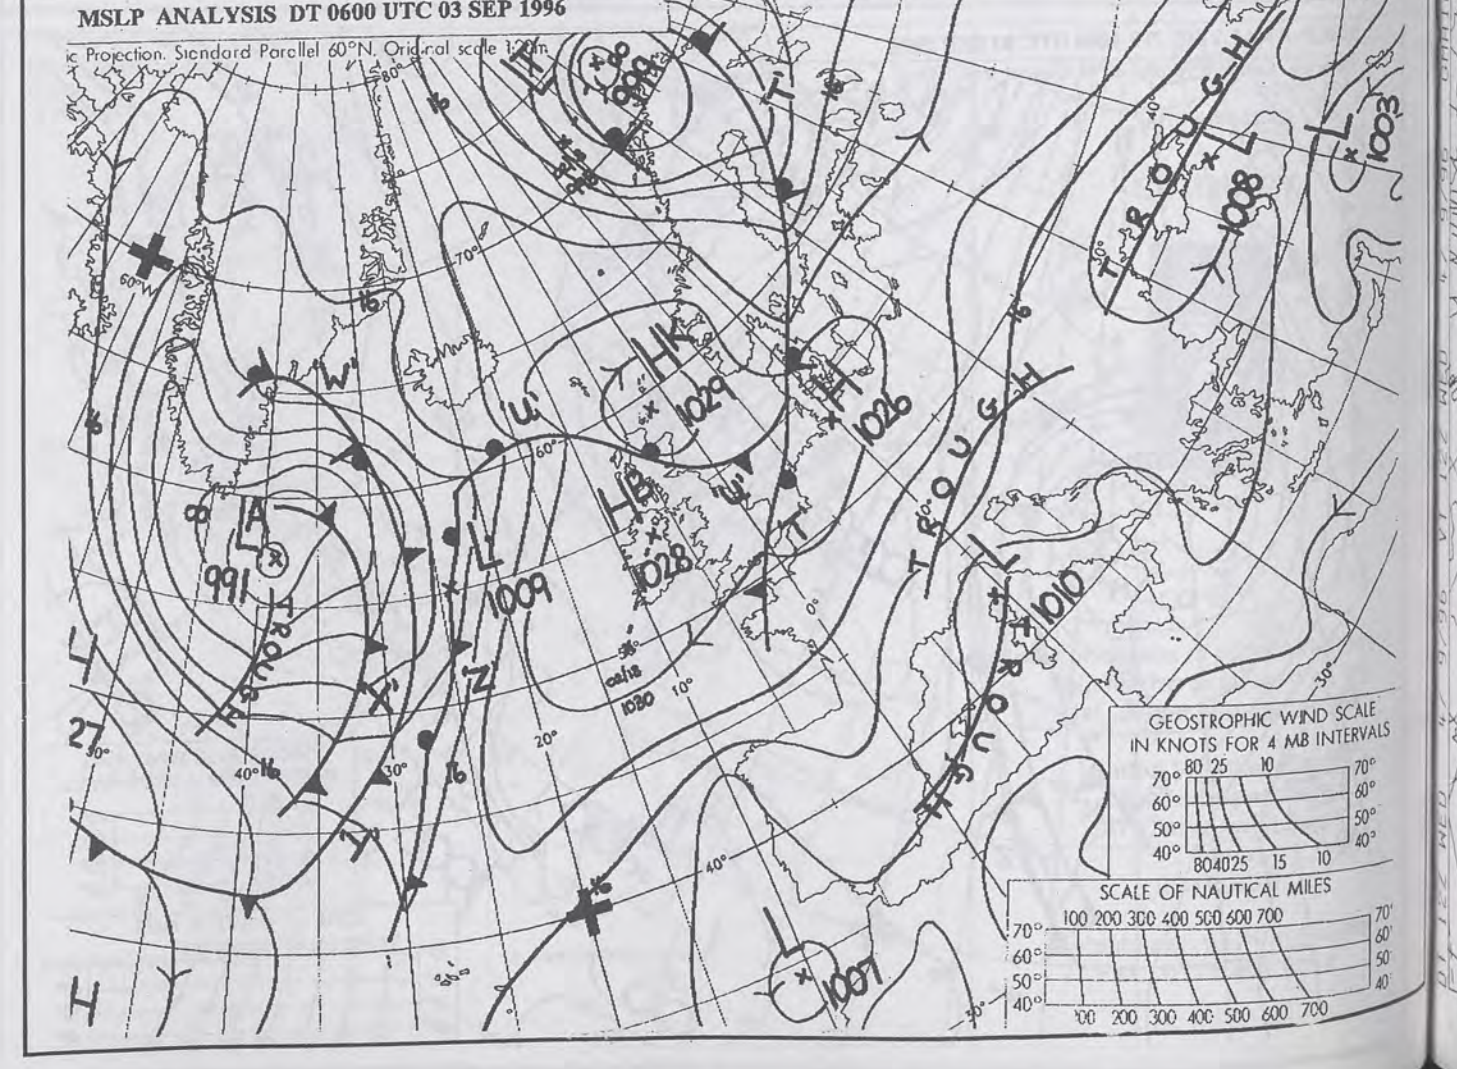 MSLP ANALYSIS DT 0600 UTC 03 SEP 1996
ic Projection. Standard Parallel 60°N. Original scale
80°
16
999
'T'
16
TROUGH
40°
L
1008
L
1003
60°W
70°
16
'W'
'U'
HK
1029
H
1026
16
TROUGH
60°
16
8
LA
991
TROUGH
L
1009
HB
1028
'Y'
'T'
L
1010
TROUGH
0°
'Z'
'X'
03/18
1030
10°
27
50°
40°
16
30°
16
20°
'Y'
40°
16
L
1007
H
30°
GEOSTROPHIC WIND SCALE
IN KNOTS FOR 4 MB INTERVALS
80 25 10
70° 70°
60° 60°
50° 50°
40° 40°
80 40 25 15 10
SCALE OF NAUTICAL MILES
100 200 300 400 500 600 700
70° 70°
60° 60°
50° 50°
40° 40°
100 200 300 400 500 600 700